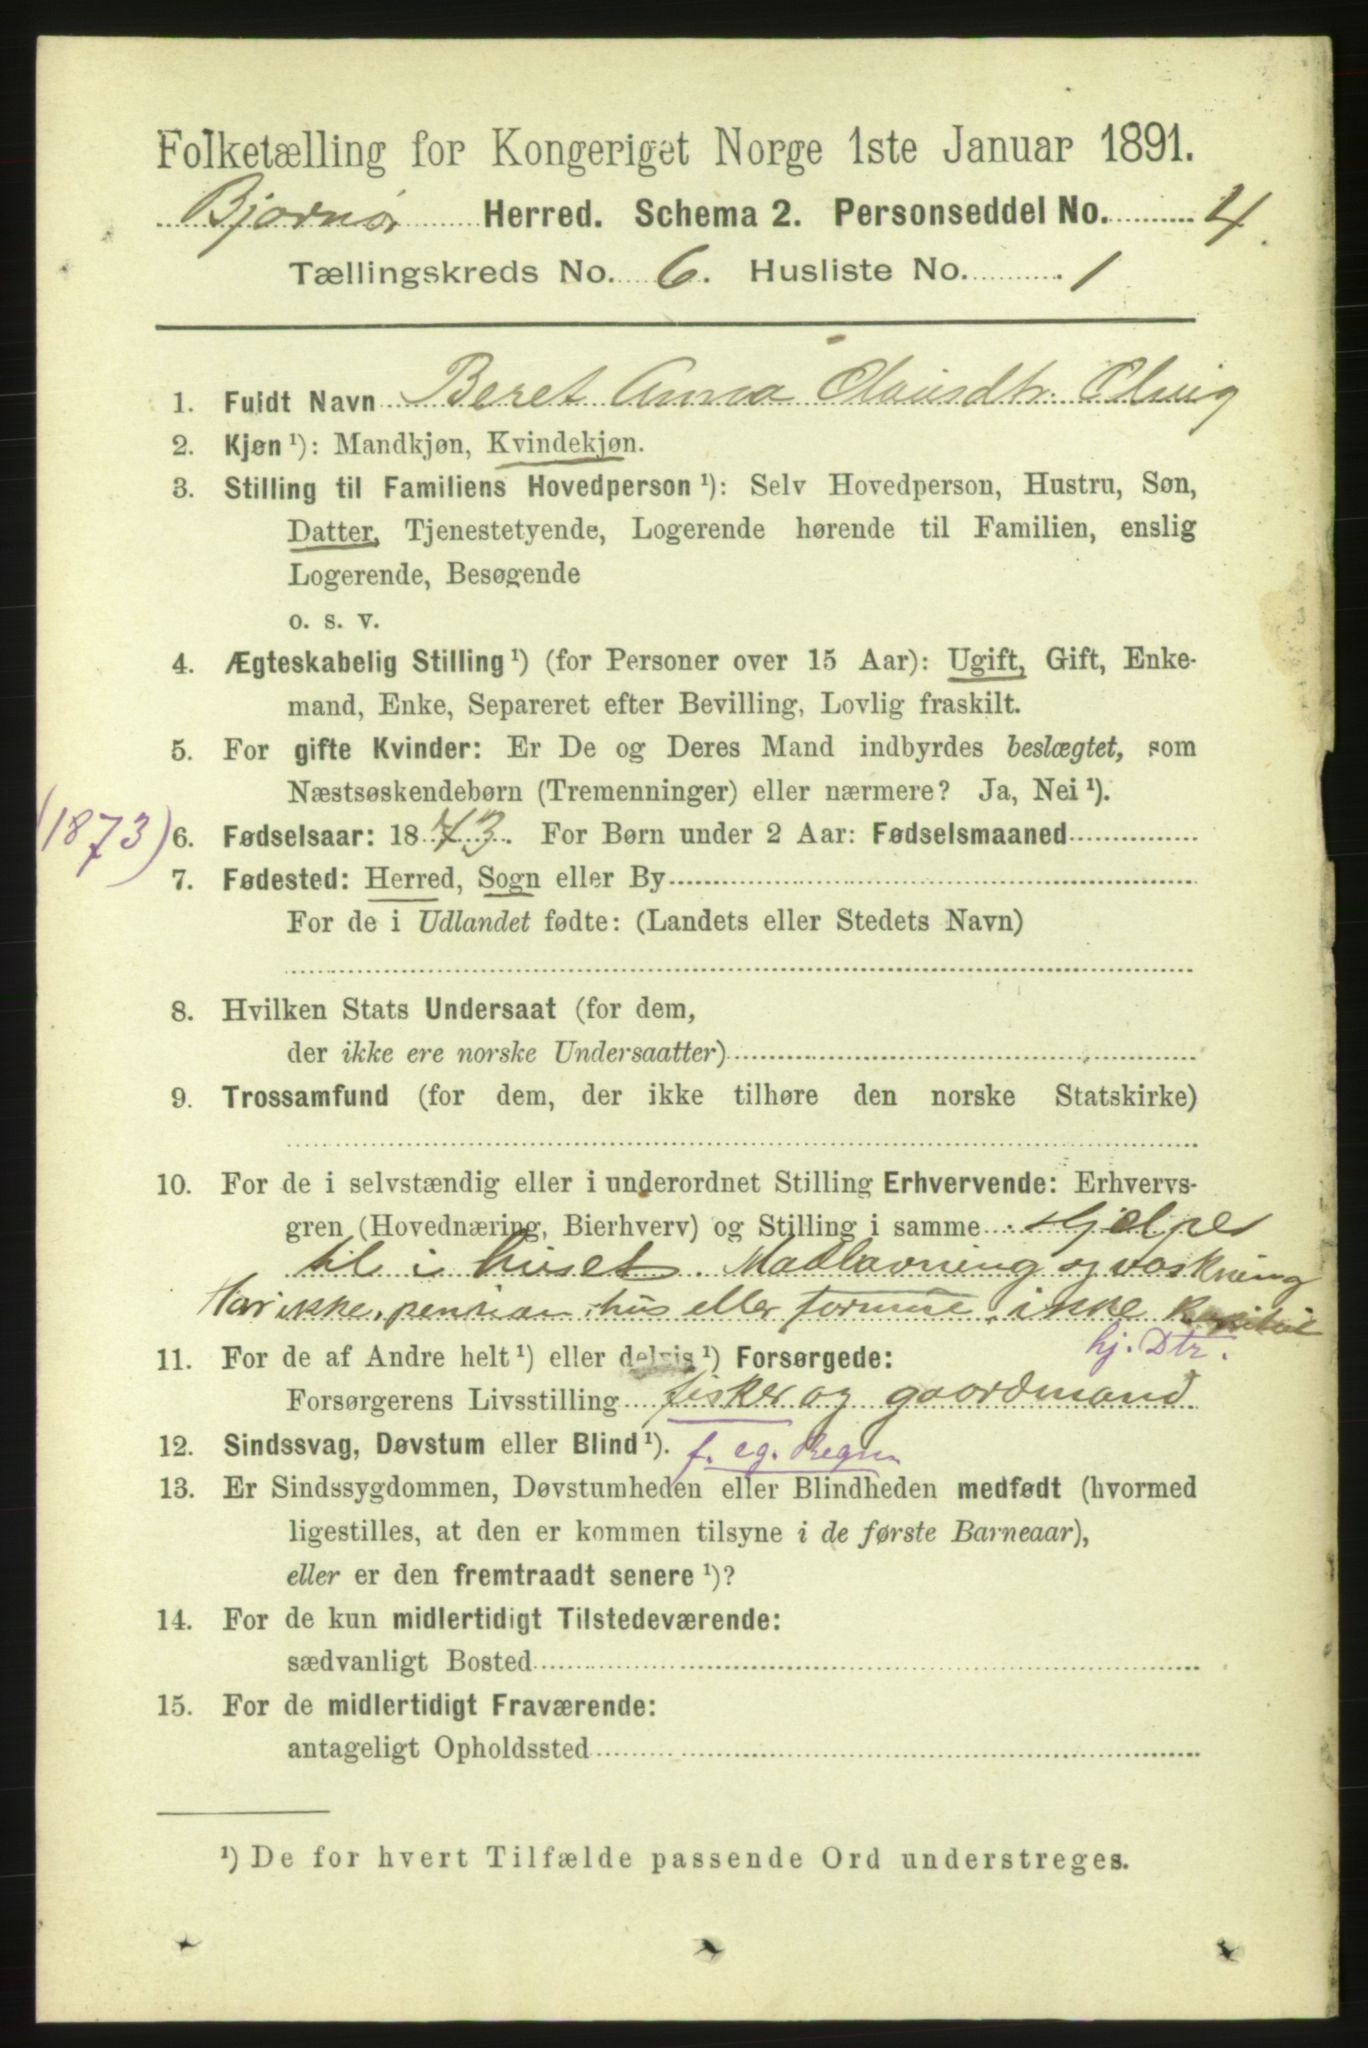 Folketælling for Kongeriget Norge 1ste Januar 1891.
Bjørnør Herred. Schema 2. Personseddel No. 4.
Tællingskreds No. 6. Husliste No. 1
1. Fuldt Navn Beret Anna Olausdtr.
2. Kjøn ¹): Mandkjøn, Kvindekjøn.
3. Stilling til Familiens Hovedperson ¹): Selv Hovedperson, Hustru, Søn,
Datter, Tjenestetyende, Logerende hørende til Familien, enslig
Logerende, Besøgende
o. s. v.
4. Ægteskabelig Stilling ¹) (for Personer over 15 Aar): Ugift, Gift, Enke-
mand, Enke, Separeret efter Bevilling, Lovlig fraskilt.
5. For gifte Kvinder: Er De og Deres Mand indbyrdes beslægtet, som
Næstsøskendebørn (Tremenninger) eller nærmere? Ja, Nei ¹).
(1873) 6. Fødselsaar: 1873. For Børn under 2 Aar: Fødselsmaaned
7. Fødested: Herred, Sogn eller By
For de i Udlandet fødte: (Landets eller Stedets Navn)
8. Hvilken Stats Undersaat (for dem,
der ikke ere norske Undersaatter)
9. Trossamfund (for dem, der ikke tilhøre den norske Statskirke)
10. For de i selvstændig eller i underordnet Stilling Erhvervende: Erhvervs-
gren (Hovednæring, Bierhverv) og Stilling i samme hjelper
til i huset. Madlavning og vaskning
Har ikke pension, hus eller formue, ikke kapital
hj. Dtr.
11. For de af Andre helt ¹) eller delvis ¹) Forsørgede:
Forsørgerens Livsstilling fisker og gaardmand
12. Sindssvag, Døvstum eller Blind ¹). f. eg. Regn
13. Er Sindssygdommen, Døvstumheden eller Blindheden medfødt (hvormed
ligestilles, at den er kommen tilsyne i de første Barneaar),
eller er den fremtraadt senere ¹)?
14. For de kun midlertidigt Tilstedeværende:
sædvanligt Bosted
15. For de midlertidigt Fraværende:
antageligt Opholdssted
¹) De for hvert Tilfælde passende Ord understreges.